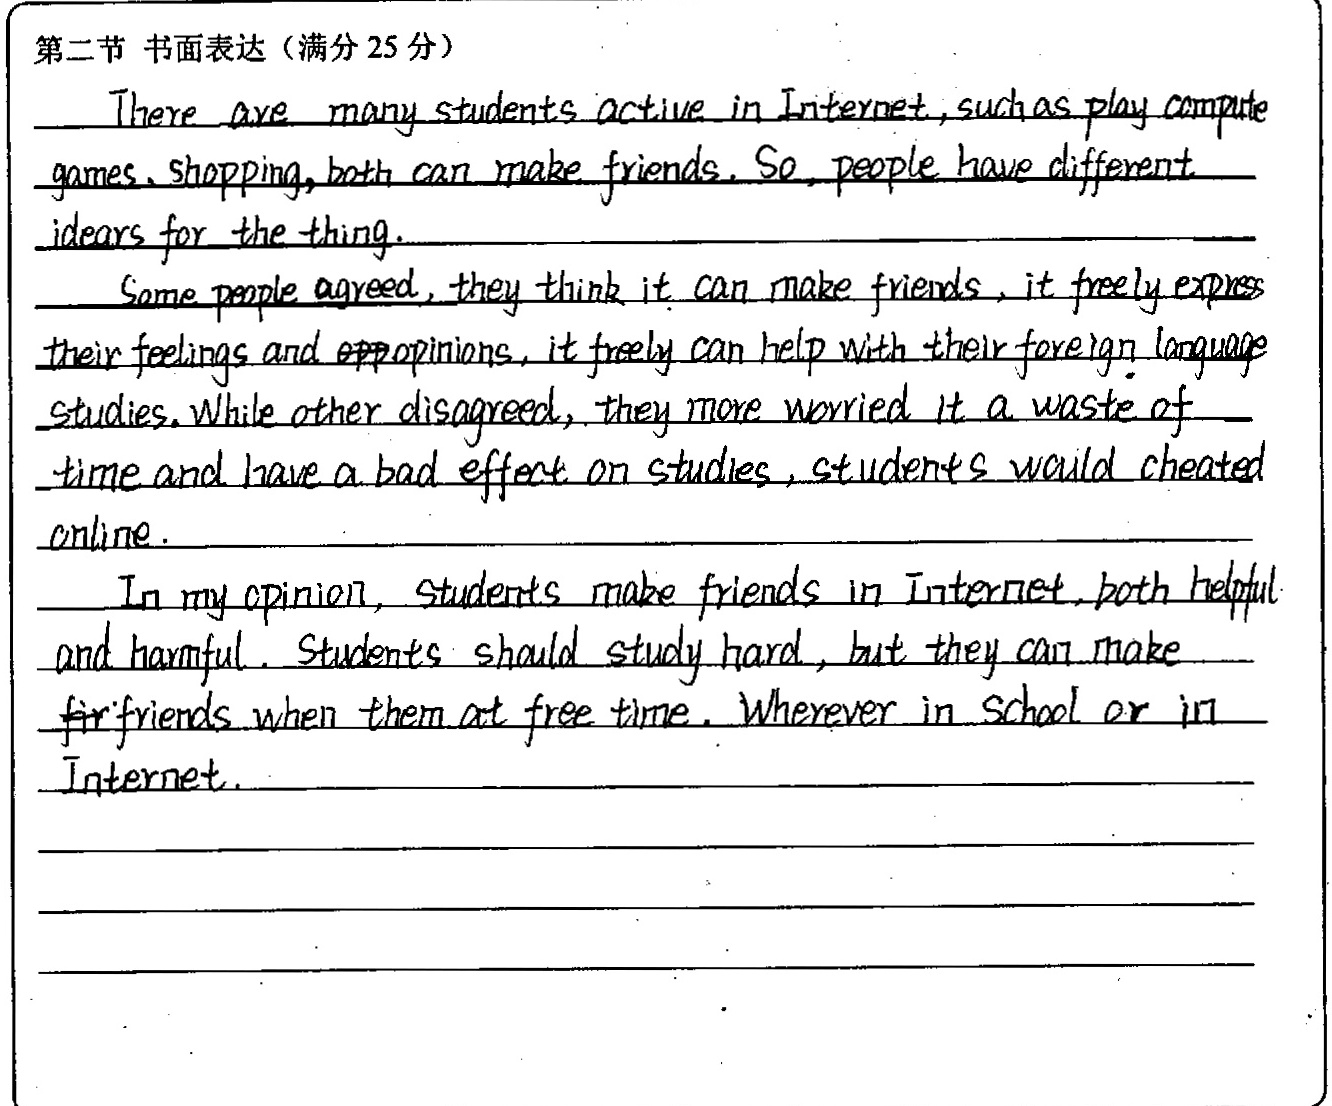 第二节 书面表达（满分 25 分）
There are many students active in Internet, such as play compute
games、shopping, both can make friends. So, people have different
idears for the thing.
Some people agreed, they think it can make friends, it freely express
their feelings and opinions, it freely can help with their foreign language
studies. While other disagreed, they more worried it a waste of
time and have a bad effect on studies, students would cheated
online.
In my opinion, students make friends in Internet, both helpful
and harmful. Students should study hard, but they can make
friends when them at free time. Wherever in school or in
Internet.